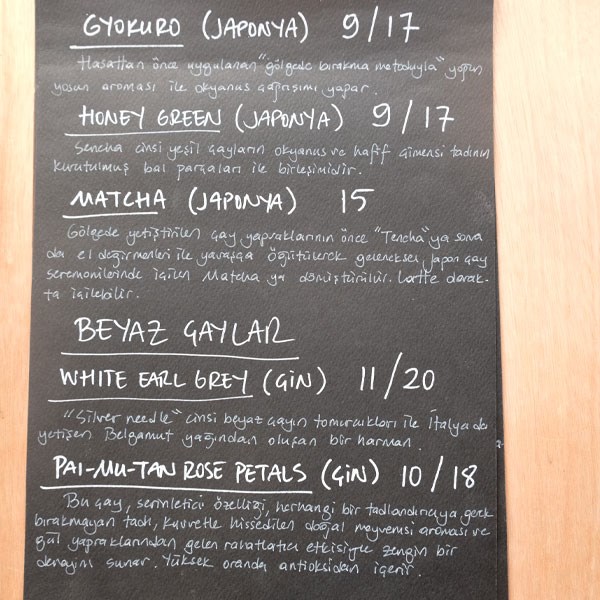 GYOKURO (JAPONYA) 9/17
Hasattan önce uygulanan "gölgede bırakma metoduyla" yoğun
yosun aroması ile okyanus çağrışımı yapar.
HONEY GREEN (JAPONYA) 9/17
Sencha cinsi yeşil çayların okyanus ve hafif çimensi tadının
kurutulmuş bal parçaları ile birleşimidir.
MATCHA (JAPONYA) 15
Gölgede yetiştirilen çay yapraklarının önce "Tencha"ya sonra
da el değirmenleri ile yavaşça öğütülerek geleneksel Japon çay
seremonilerinde içilen Matcha ya dönüştürülür. Latte olarak-
ta içilebilir.
BEYAZ ÇAYLAR
WHITE EARL GREY (ÇİN) 11/20
"Silver needle" cinsi beyaz çayın tomurcukları ile İtalya da
yetişen Belgamut yağından oluşan bir harman.
PAI-MU-TAN ROSE PETALS (ÇİN) 10/18
Bu çay, serinletici özelliği, herhangi bir tadlandırıcıya gerek
bırakmayan tadı, kuvvetle hissedilen doğal meyvemsi aroması ve
gül yapraklarından gelen rahatlatıcı etkisiyle zengin bir
deneyim sunar. Yüksek oranda antioksidan içerir.